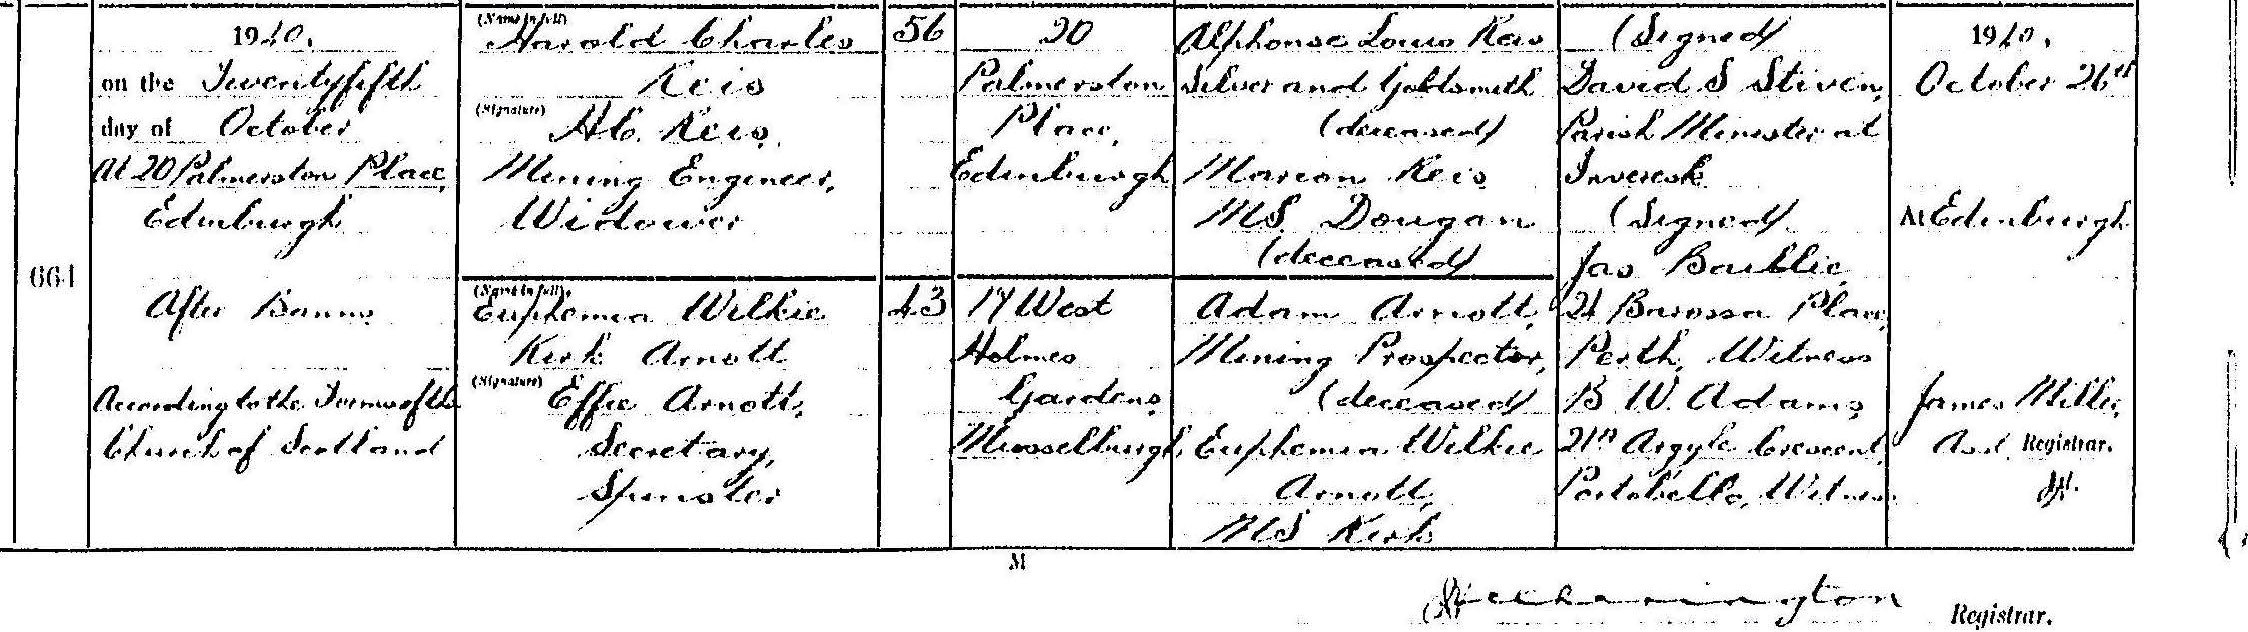 664
1940.
on the Twentyfifth
day of October
At 20 Palmerston Place,
Edinburgh
After Banns
According to the Forms of the
Church of Scotland
(Name in full)
Harold Charles
Reis
(Signature)
H.C. Reis,
Mining Engineer,
Widower
(Name in full)
Euphemia Wilkie
Kirk Arnott
(Signature)
Effie Arnott,
Secretary,
Spinster
56
43
20
Palmerston
Place,
Edinburgh
17 West
Holmes
Gardens,
Musselburgh
Alphonse Louis Reis
Silver and Goldsmith
(deceased)
Marion Reis
MS. Dougan
(deceased)
Adam Arnott,
Mining Prospector,
(deceased)
Euphemia Wilkie
Arnott,
MS Kirk
(Signed)
David S Stiven,
Parish Minister at
Inveresk
(Signed)
Jas Baillie,
21 Barossa Place,
Perth, Witness
B W. Adams,
21A Argyle Crescent,
Portobello, Witness
1940,
October 26th
At Edinburgh
James Miller,
Asst. Registrar.
M
Registrar.